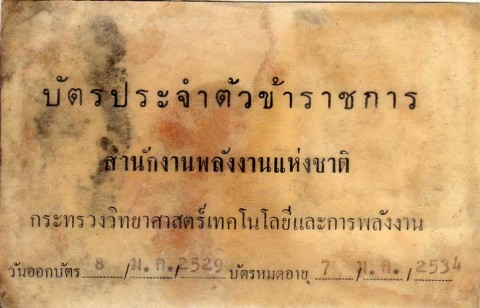 บัตรประจำตัวข้าราชการ
สำนักงานพลังงานแห่งชาติ
กระทรวงวิทยาศาสตร์เทคโนโลยีและการพลังงาน
วันออกบัตร 8 / ม.ค. / 2529 บัตรหมดอายุ 7 / ม.ค. / 2534